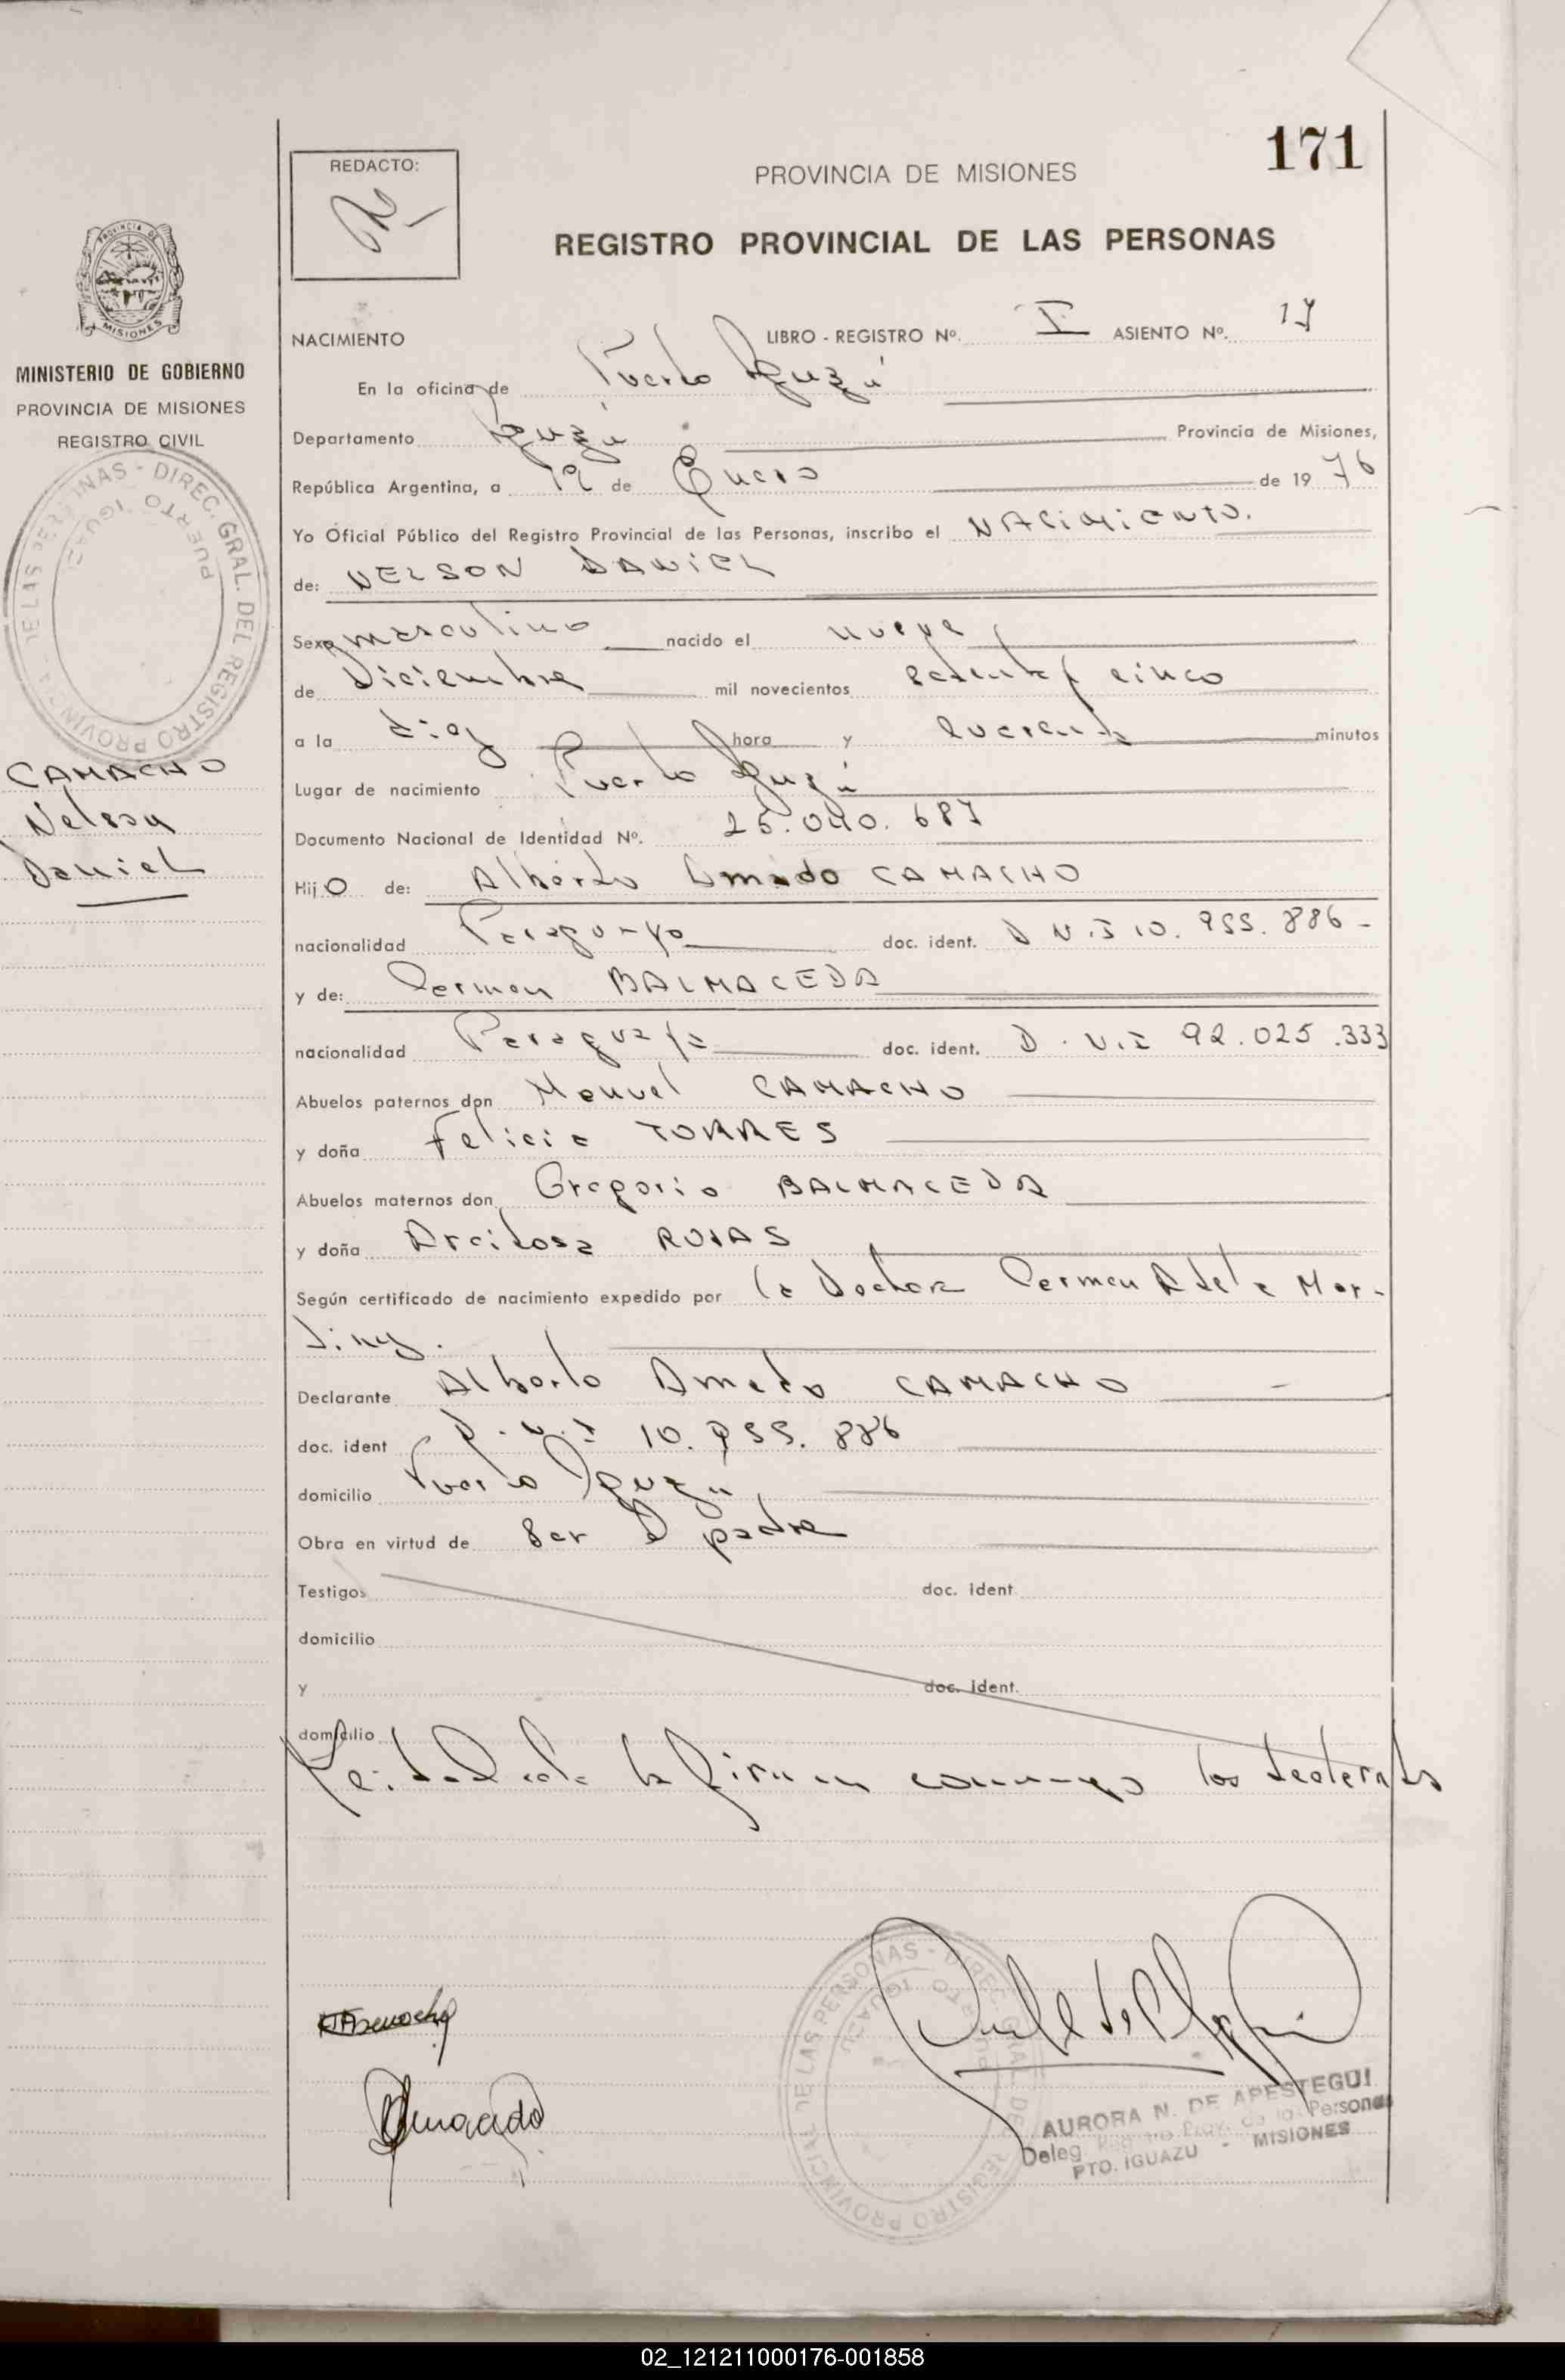 171
REDACTO:
PROVINCIA DE MISIONES
REGISTRO PROVINCIAL DE LAS PERSONAS
MISIONES
MINISTERIO DE GOBIERNO
PROVINCIA DE MISIONES
REGISTRO CIVIL
CAMACHO
Nelson
Daniel
NACIMIENTO LIBRO - REGISTRO Nº. I ASIENTO Nº. 17
En la oficina de Puerto Iguazú
Departamento Iguazú Provincia de Misiones,
República Argentina, a 12 de Enero de 1976
Yo Oficial Público del Registro Provincial de las Personas, inscribo el NACIMIENTO.
de: NELSON DANIEL
Sexo masculino nacido el nueve
de Diciembre mil novecientos setenta y cinco
a la diez hora y cuarenta minutos
Lugar de nacimiento Puerto Iguazú
Documento Nacional de Identidad Nº. 25.040.687
Hijo de: Alberto Amado CAMACHO
nacionalidad Paraguayo doc. ident. D N.I 10.955.886-
y de: Carmen BALMACEDA
nacionalidad Paraguaya doc. ident. D.N.I 92.025.333
Abuelos paternos don Manuel CAMACHO
y doña Felicia TORRES
Abuelos maternos don Gregorio BALMACEDA
y doña ROJAS
Según certificado de nacimiento expedido por la Doctora Carmen Adela Mar-
tinez.
Declarante Alberto Amado CAMACHO
doc. ident D.N.I 10.955.886
domicilio Puerto Iguazú
Obra en virtud de ser el padre
Testigos doc. ident.
domicilio
y doc. ident.
domicilio
Leida el acta la firman conmigo los
AURORA N. DE APESTEGUI
Deleg. Registro Prov. de las Personas
PTO. IGUAZU - MISIONES
02_121211000176-001858